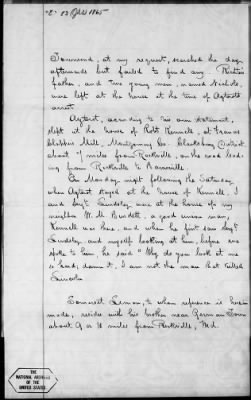 "2" 23 April 1865
Townsend, at my request, searched the day
afterwards but failed to find any.
father, and two young men, named Nichols,
were left at the house at the time of
arrest.
according to his own statement,
slept at the house of Robt Kinnell, at
Mill, Montgomery Co. Clarksburg District
about 7 miles from Rockville, on the road lead-
ing from Rockville to Barnsville.
On Monday night following the Saturday
when stayed at the house of Kinnell, I
and Sergt Lindsley were at the house of my
neighbor W. M. Burdett, a good union man,
Kinnell was there, and when he first saw Sergt
Lindsley and myself looking at him, before we
spoke to him he said "Why do you look at me
so hard; damn it, I am not the man that killed
Lincoln
Somerset Leaman, to whom reference is herein
made, resides with his brother near German Town
about 9 or 10 miles from Rockville, Md.
THE
NATIONAL ARCHIVES
OF THE
UNITED STATES